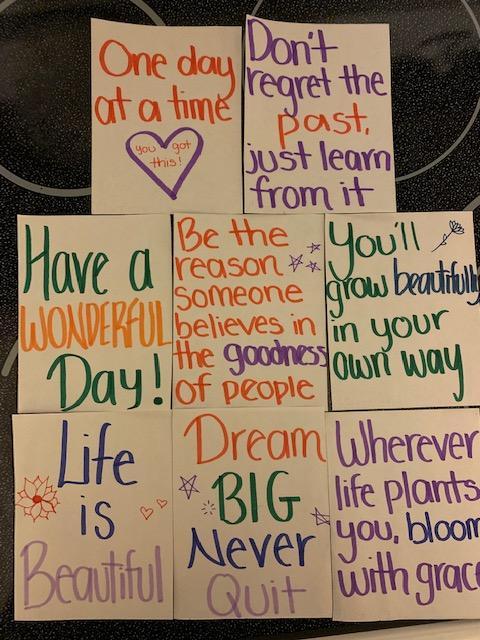 One day
at a time
you got
this!
Don't
regret the
past,
just learn
from it
Have a
WONDERFUL
Day!
Be the
reason
someone
believes in
the goodness
of people
You'll
grow beautifully
in your
own way
Life
is
Beautiful
Dream
BIG
Never
Quit
Wherever
life plants
you, bloom
with grace